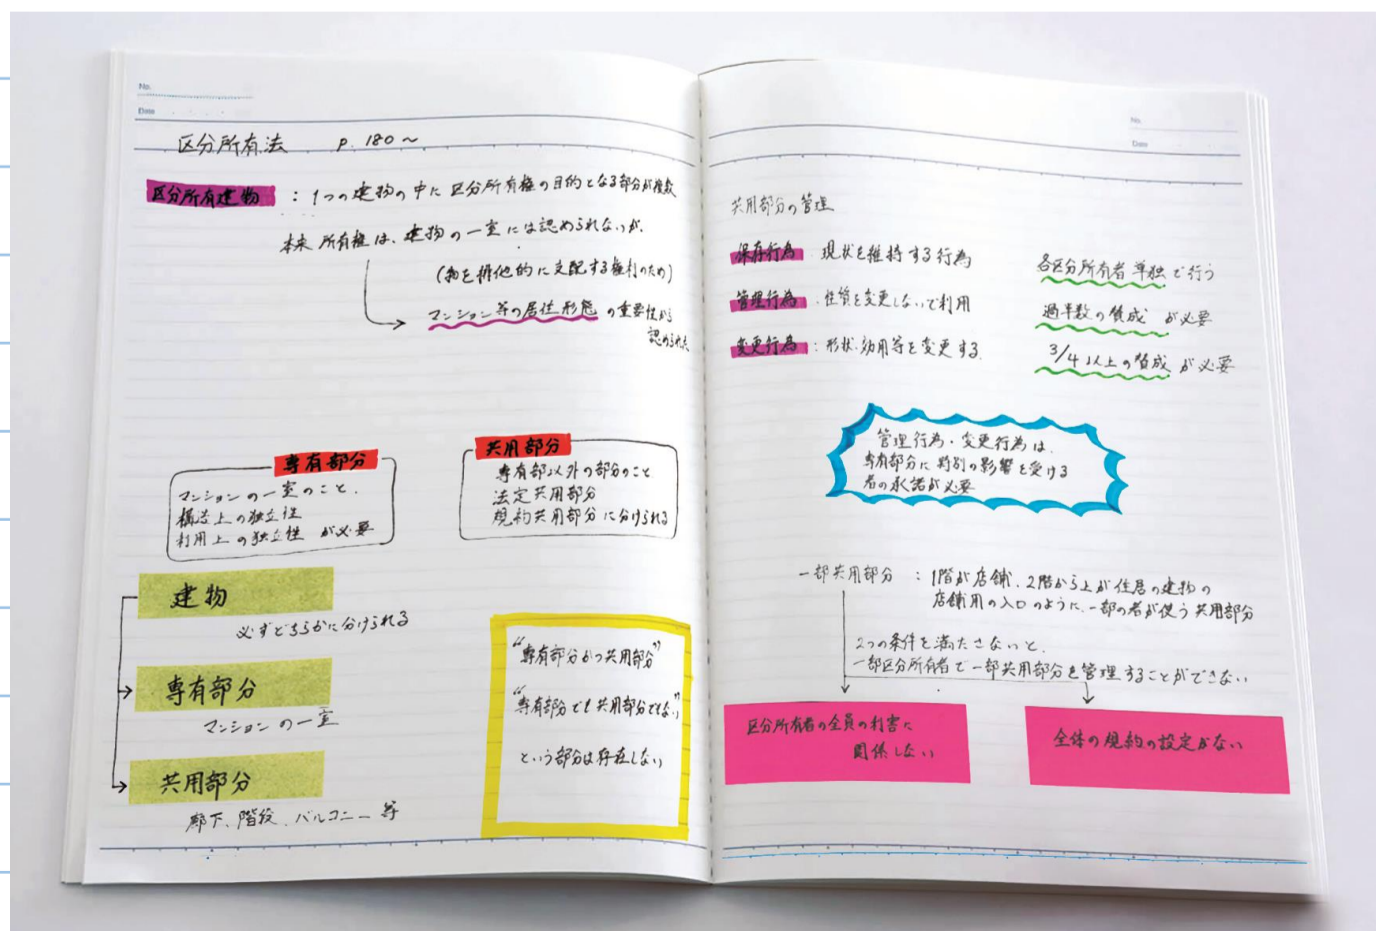 No.
Date
区分所有法 p. 180～
区分所有建物 : 1つの建物の中に区分所有権の目的となる部分が複数
本来 所有権は、建物の一室には認められないが、
(物を排他的に支配する権利のため)
マンション等の居住形態 の重要性から
認められた
専有部分
マンションの一室のこと.
構造上の独立性
利用上の独立性 が必要
共用部分
専有部以外の部分のこと
法定共用部分
規約共用部分に分けられる
建物
必ずどちらかに分けられる
専有部分
マンションの一室
共用部分
廊下、階段、バルコニー等
"専有部分かつ共用部分"
"専有部分でも共用部分でもない"
という部分は存在しない
No.
Date
共用部分の管理
保存行為 : 現状を維持する行為 各区分所有者単独で行う
管理行為 : 性質を変更しないで利用 過半数の賛成 が必要
変更行為 : 形状.効用等を変更する. 3/4以上の賛成 が必要
管理行為・変更行為は.
専有部分に特別の影響を受ける
者の承諾が必要
一部共用部分 : 1階が店舗、2階から上が住居の建物の
店舗用の入口のように、一部の者が使う共用部分
2つの条件を満たさないと、
一部区分所有者で一部共用部分を管理することができない
区分所有者の全員の利害に
関係しない
全体の規約の設定がない